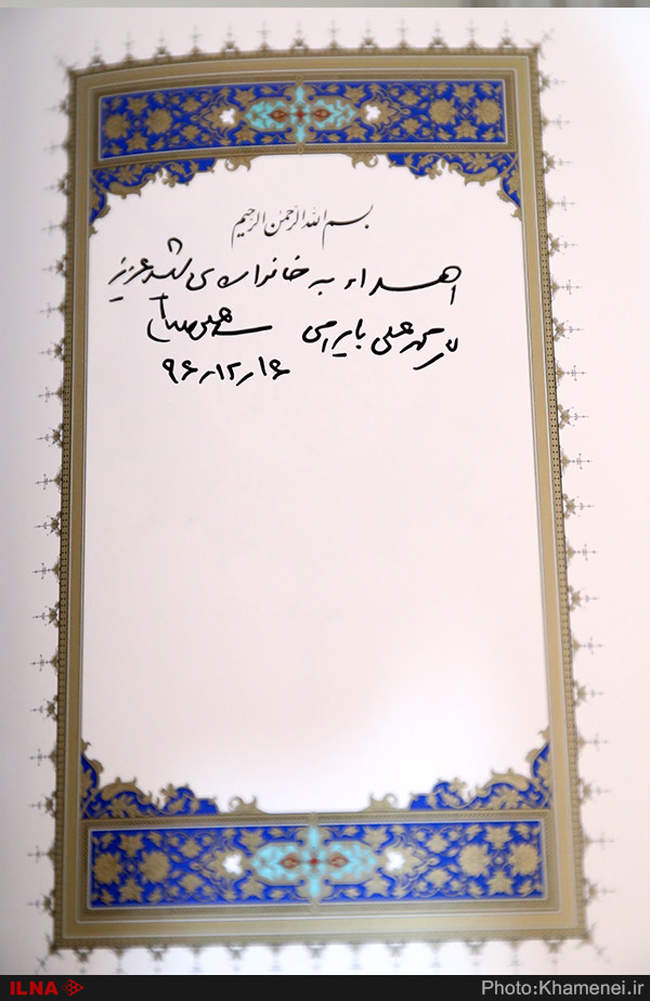 بسم الله الرحمن الرحیم
اهداء به خانواده‌ی شهید عزیز
محمد علی بایرامی سیدعلی خامنه‌ای
۹۶ر۱۲ر۱۶
ILNA
Photo:Khamenei.ir